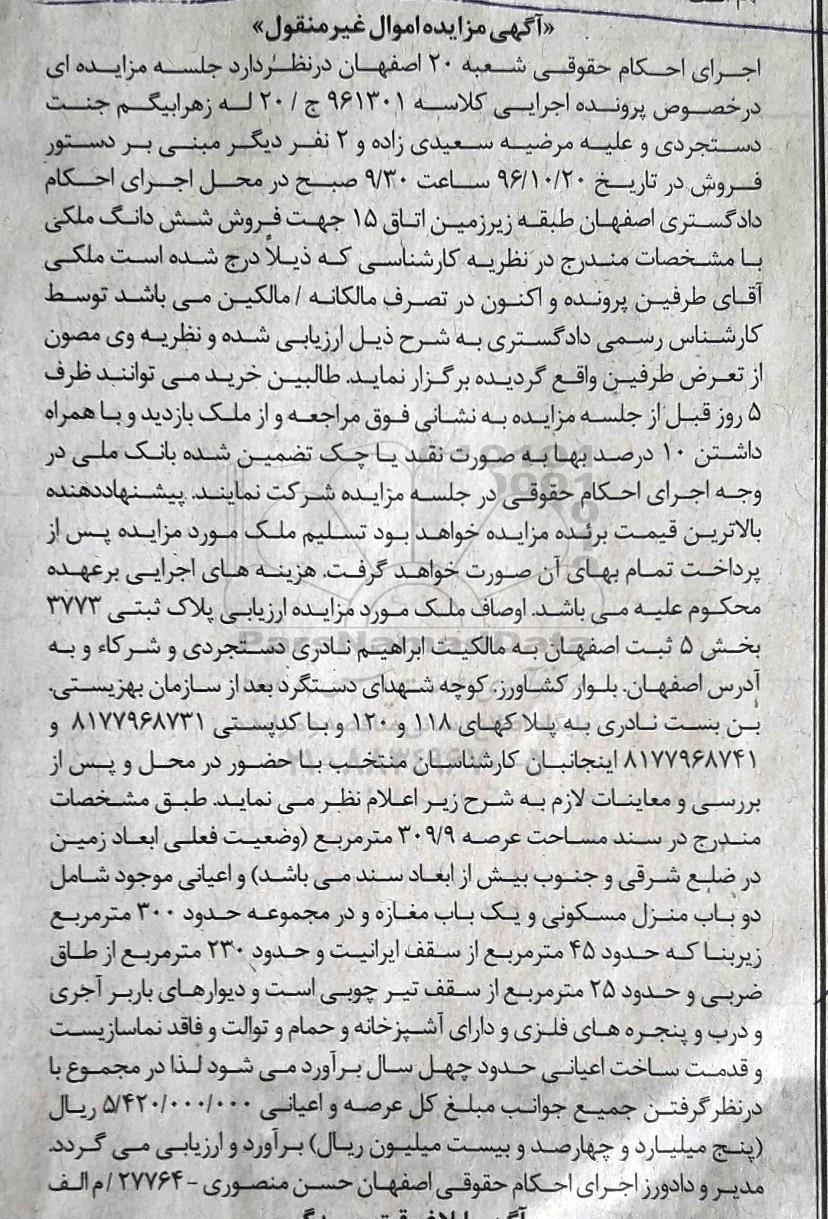 «آگهی مزایده اموال غیرمنقول»
اجرای احکام حقوقی شعبه ۲۰ اصفهان درنظردارد جلسه مزایده ای
درخصوص پرونده اجرایی کلاسه ۹۶۱۳۰۱ ج / ۲۰ له زهرابیگم جنت
دستجردی و علیه مرضیه سعیدی زاده و ۲ نفر دیگر مبنی بر دستور
فروش در تاریخ ۹۶/۱۰/۲۰ ساعت ۹/۳۰ صبح در محل اجرای احکام
دادگستری اصفهان طبقه زیرزمین اتاق ۱۵ جهت فروش شش دانگ ملکی
با مشخصات مندرج در نظریه کارشناسی که ذیلاً درج شده است ملکی
آقای طرفین پرونده و اکنون در تصرف مالکانه / مالکین می باشد توسط
کارشناس رسمی دادگستری به شرح ذیل ارزیابی شده و نظریه وی مصون
از تعرض طرفین واقع گردیده برگزار نماید. طالبین خرید می توانند ظرف
۵ روز قبل از جلسه مزایده به نشانی فوق مراجعه و از ملک بازدید و با همراه
داشتن ۱۰ درصد بها به صورت نقد یا چک تضمین شده بانک ملی در
وجه اجرای احکام حقوقی در جلسه مزایده شرکت نمایند. پیشنهاددهنده
بالاترین قیمت برنده مزایده خواهد بود تسلیم ملک مورد مزایده پس از
پرداخت تمام بهای آن صورت خواهد گرفت. هزینه های اجرایی برعهده
محکوم علیه می باشد. اوصاف ملک مورد مزایده ارزیابی پلاک ثبتی ۳۷۷۳
بخش ۵ ثبت اصفهان به مالکیت ابراهیم نادری دستجردی و شرکاء و به
آدرس اصفهان. بلوار کشاورز. کوچه شهدای دستگرد بعد از سازمان بهزیستی.
بن بست نادری به پلاکهای ۱۱۸ و ۱۲۰ و با کدپستی ۸۱۷۷۹۶۸۷۳۱ و
۸۱۷۷۹۶۸۷۴۱ اینجانبان کارشناسان منتخب با حضور در محل و پس از
بررسی و معاینات لازم به شرح زیر اعلام نظر می نماید. طبق مشخصات
مندرج در سند مساحت عرصه ۳۰۹/۹ مترمربع (وضعیت فعلی ابعاد زمین
در ضلع شرقی و جنوب بیش از ابعاد سند می باشد) و اعیانی موجود شامل
دو باب منزل مسکونی و یک باب مغازه و در مجموعه حدود ۳۰۰ مترمربع
زیربنا که حدود ۴۵ مترمربع از سقف ایرانیت و حدود ۲۳۰ مترمربع از طاق
ضربی و حدود ۲۵ مترمربع از سقف تیر چوبی است و دیوارهای باربر آجری
و درب و پنجره های فلزی و دارای آشپزخانه و حمام و توالت و فاقد نماسازیست
و قدمت ساخت اعیانی حدود چهل سال برآورد می شود لذا در مجموع با
درنظرگرفتن جمیع جوانب مبلغ کل عرصه و اعیانی ۵/۴۲۰/۰۰۰/۰۰۰ ریال
(پنج میلیارد و چهارصد و بیست میلیون ریال) برآورد و ارزیابی می گردد.
مدیر و دادورز اجرای احکام حقوقی اصفهان حسن منصوری - ۲۷۷۶۴ / م الف
ParsNamadData